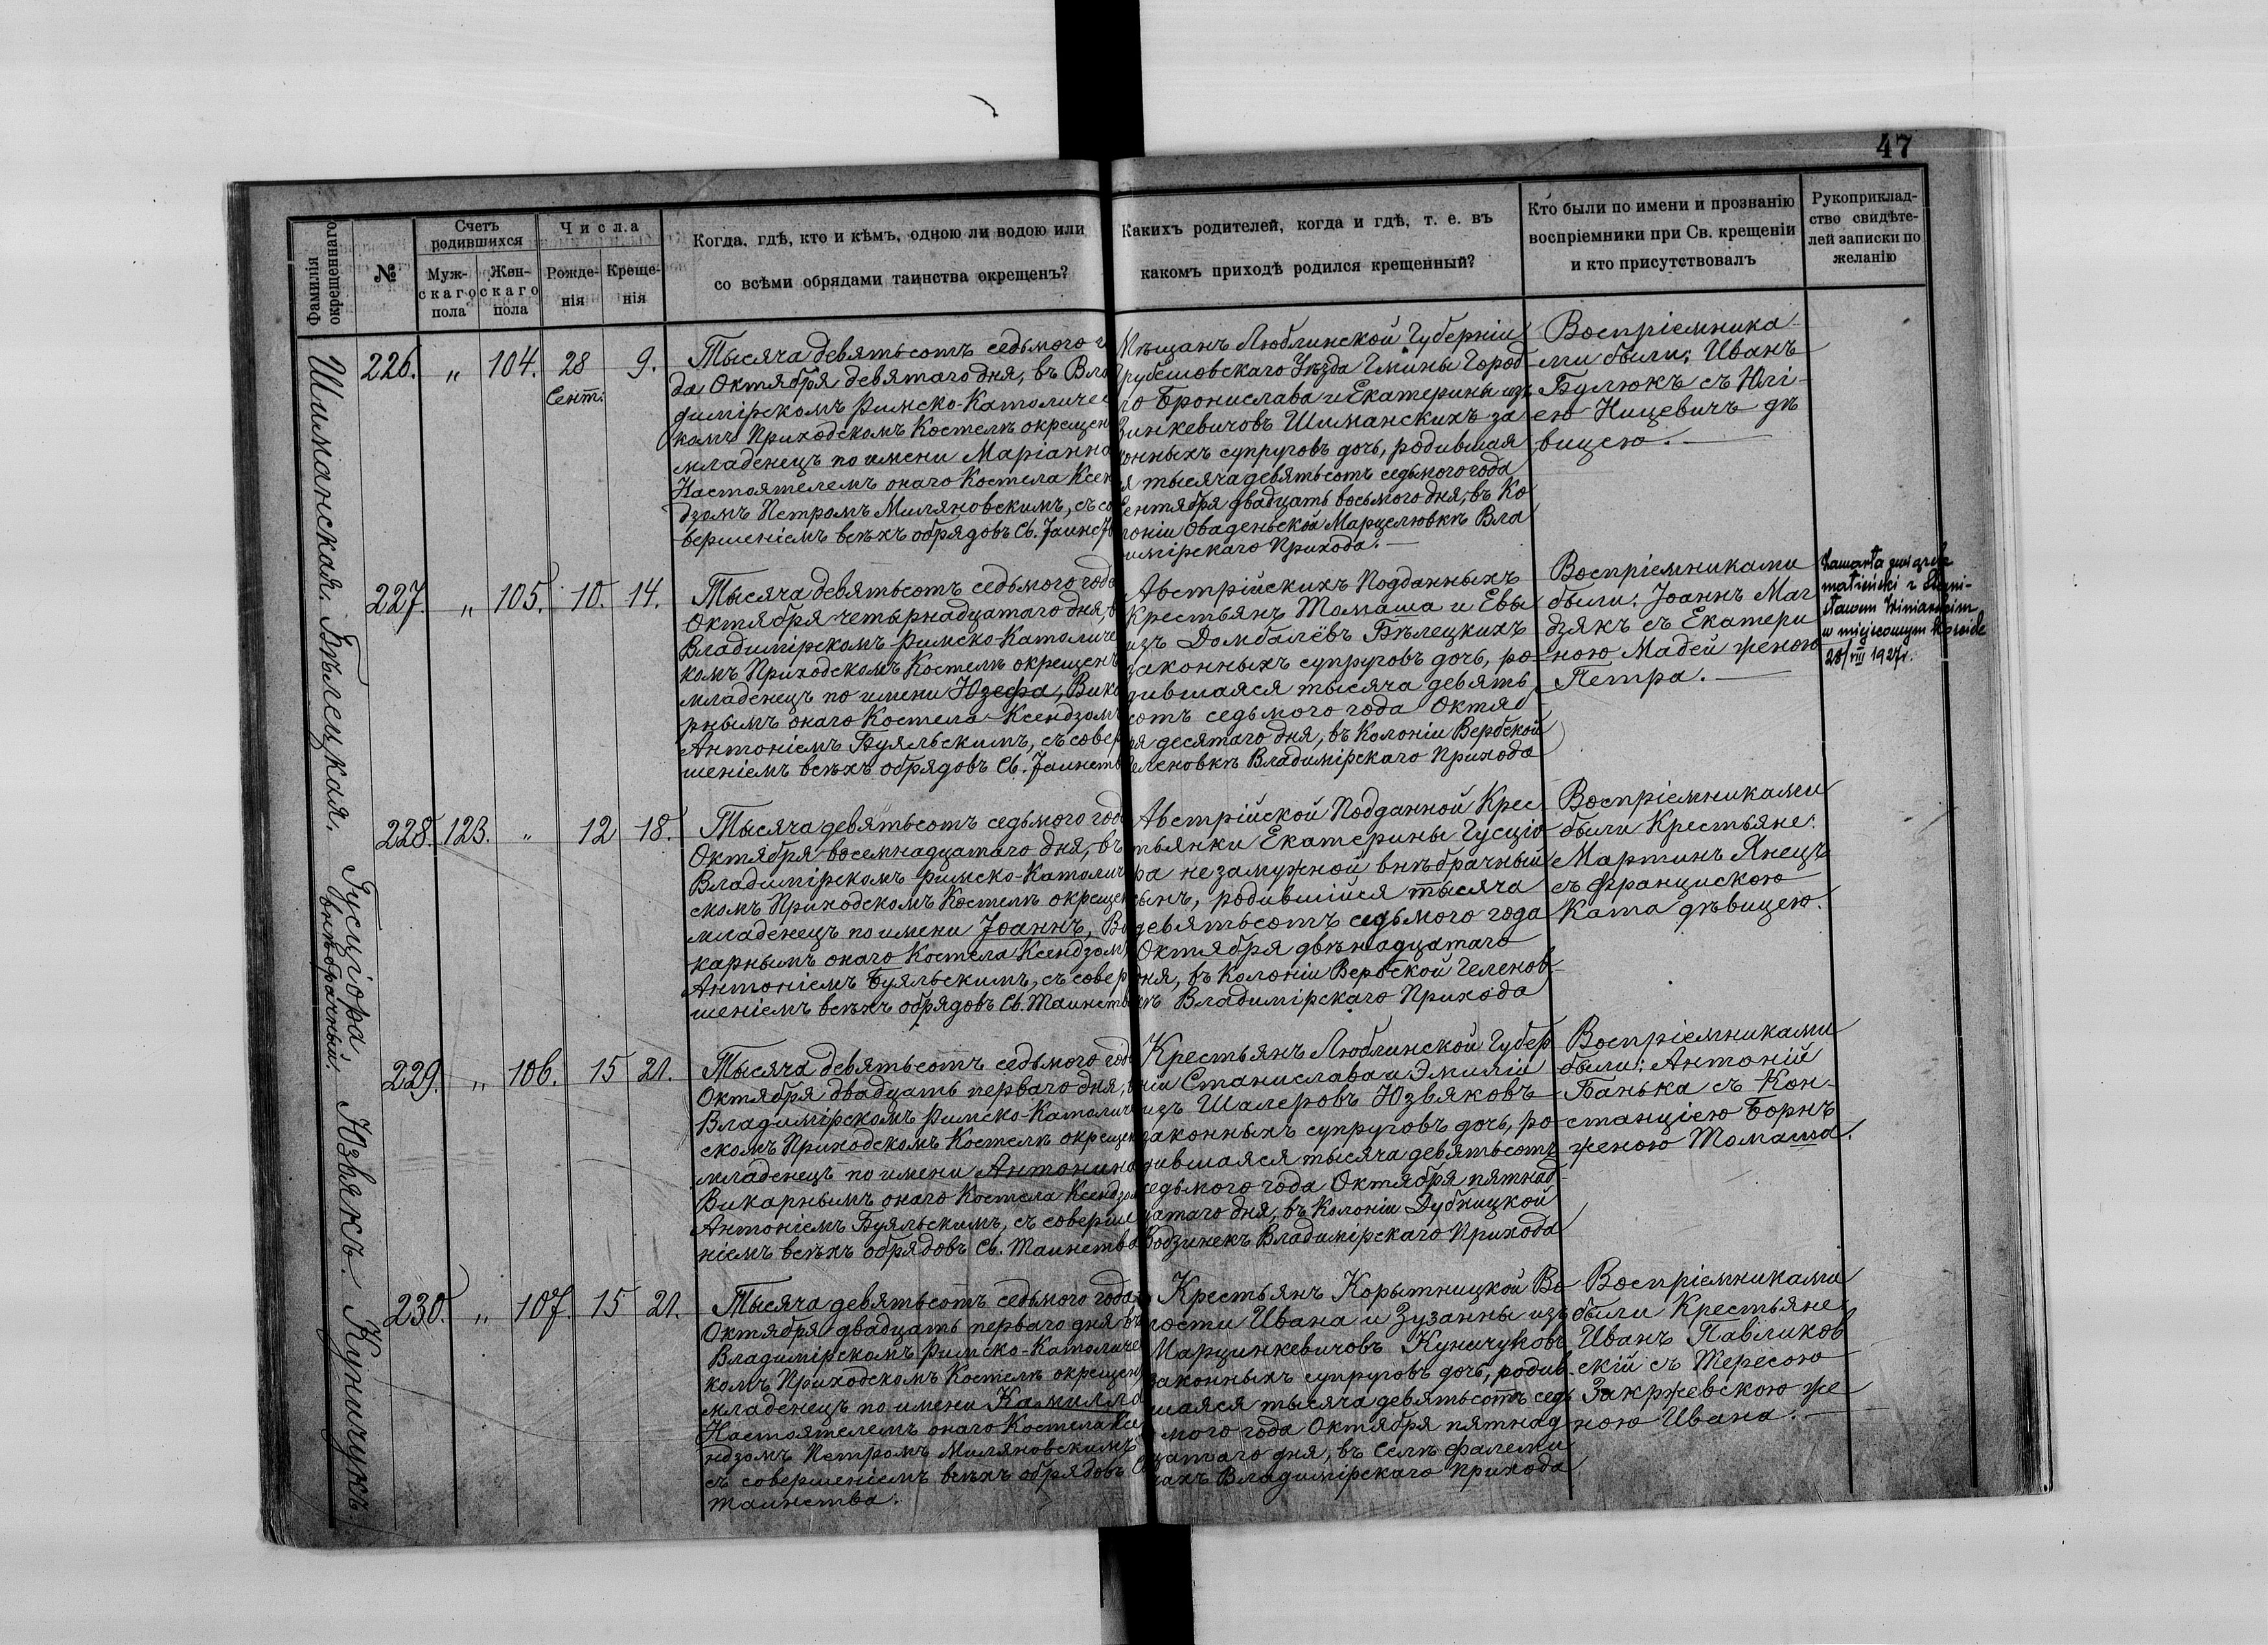 47
Фамилія окрещеннаго
№
Счетъ родившихся
Муж-скаго пола
Жен-скаго пола
Числа
Рожде-нія
Креще-нія
Когда, гдѣ, кто и кѣмъ, одною ли водою или
со всѣми обрядами таинства окрещенъ?
Какихъ родителей, когда и гдѣ, т. е. въ
какомъ приходѣ родился крещенный?
Кто были по имени и прозванію
воспріемники при Св. крещеніи
и кто присутствовалъ
Рукоприклад-
ство свидѣте-
лей записки по
желанію
Шиманская.
226. „ 104. 28 9.
Сент.
Тысяча девятьсотъ седьмого г
да Октября девятаго дня, въ Вла
димірскомъ Римско-Католичес
комъ Приходскомъ Костелѣ окрещен
младенецъ по имени Маріанна
Настоятелемъ онаго Костела Ксен
дзомъ Петромъ Миляновскимъ, съ со
вершеніемъ всѣхъ обрядовъ Св. Таинст
Мѣщанъ Люблинской Губерніи
Грубешовскаго Уѣзда Гмины Город
ло Бронислава и Екатерины изъ
Зинкевичовъ Шиманскихъ за
конныхъ супруговъ дочь, родившая
я тысяча девятьсотъ седьмого года
Сентября двадцать восьмого дня, въ Ко
лоніи Оваденьской Марцелювкѣ Вла
димірскаго Прихода.
Воспріемника-
ми были: Иванъ
Булюкъ съ Юлі-
ею Ницевичъ дѣ
вицею.
Бѣлецкая.
227. „ 105. 10. 14.
Тысяча девятьсотъ седьмого года
Октября четырнадцатаго дня, в
Владимірскомъ Римско-Католиче
комъ Приходскомъ Костелѣ окрещенъ
младенецъ по имени Юзефа, Вика
рнымъ онаго Костела Ксендзомъ
Антоніемъ Буяльскимъ, съ совер
шеніемъ всѣхъ обрядовъ Св. Таинств
Австрійскихъ Подданныхъ
Крестьянъ Томаша и Евы
изъ Домбалёвъ Бѣлецкихъ
законныхъ супруговъ дочь, ро
дившаяся тысяча девять
сотъ седьмого года Октяб
ря десятаго дня, въ Колоніи Вербской
Геленовкѣ Владимірскаго Прихода
Воспріемниками
были: Іоаннъ Маг
дзякъ съ Екатери
ною Мадей женою
Петра.
Zawarła związek
małżeński z Stani-
sławem Winiarskim
w miejscowym kościele
28/VIII 1927 r.
Гусціора
внѣбрачный.
228. 123. „ 12 18.
Тысяча девятьсотъ седьмого год
Октября восемнадцатаго дня, въ
Владимірскомъ Римско-Католич
скомъ Приходскомъ Костелѣ окрещен
младенецъ по имени Іоаннъ, Ви
карнымъ онаго Костела Ксендзомъ
Антоніемъ Буяльскимъ, съ совер
шеніемъ всѣхъ обрядовъ Св. Таинств
Австрійской Подданной Крес
тьянки Екатерины Гусціо
ра незамужной внѣбрачный
сынъ, родившійся тысяча
девятьсотъ седьмого года
Октября двѣнадцатаго
дня, въ Колоніи Вербской Геленов-
кѣ Владимірскаго Прихода
Воспріемниками
были Крестьяне:
Мартинъ Янецъ
съ Францискою
Ката дѣвицею.
Юзвякъ.
229. „ 106. 15 21.
Тысяча девятьсотъ седьмого год
Октября двадцать перваго дня, в
Владимірскомъ Римско-Католич
скомъ Приходскомъ Костелѣ окрещен
младенецъ по имени Антонина
Викарнымъ онаго Костела Ксендзом
Антоніемъ Буяльскимъ, съ соверше
ніемъ всѣхъ обрядовъ Св. Таинства
Крестьянъ Люблинской Губер
ніи Станислава и Эмиліи
изъ Шалеровъ Юзвяковъ
законныхъ супруговъ дочь, ро
дившаяся тысяча девятьсотъ
седьмого года Октября пятнад-
цатаго дня, въ Колоніи Дубницкой
Владимірскаго Прихода
Воспріемниками
были: Антоній
Банька съ Кон-
станціею Борнъ
женою Томаша.
Куничукъ
230. „ 107. 15 21.
Тысяча девятьсотъ седьмого года
Октября двадцать перваго дня въ
Владимірскомъ Римско-Католиче
комъ Приходскомъ Костелѣ окрещен
младенецъ по имени Камилла
Настоятелемъ онаго Костела Ксе
ндзомъ Петромъ Миляновскимъ
съ совершеніемъ всѣхъ обрядовъ С
Таинства.
Крестьянъ Корытницкой Во
лости Ивана и Зузанны изъ
Марцинкевичовъ Куничуковъ
законныхъ супруговъ дочь, родив-
шаяся тысяча девятьсотъ седь
мого года Октября пятнад
цатаго дня, въ Селѣ Фалеми
чахъ Владимірскаго Прихода
Воспріемниками
были Крестьяне
Иванъ Павликов
скій съ Тересою
Закржевскою же
ною Ивана.